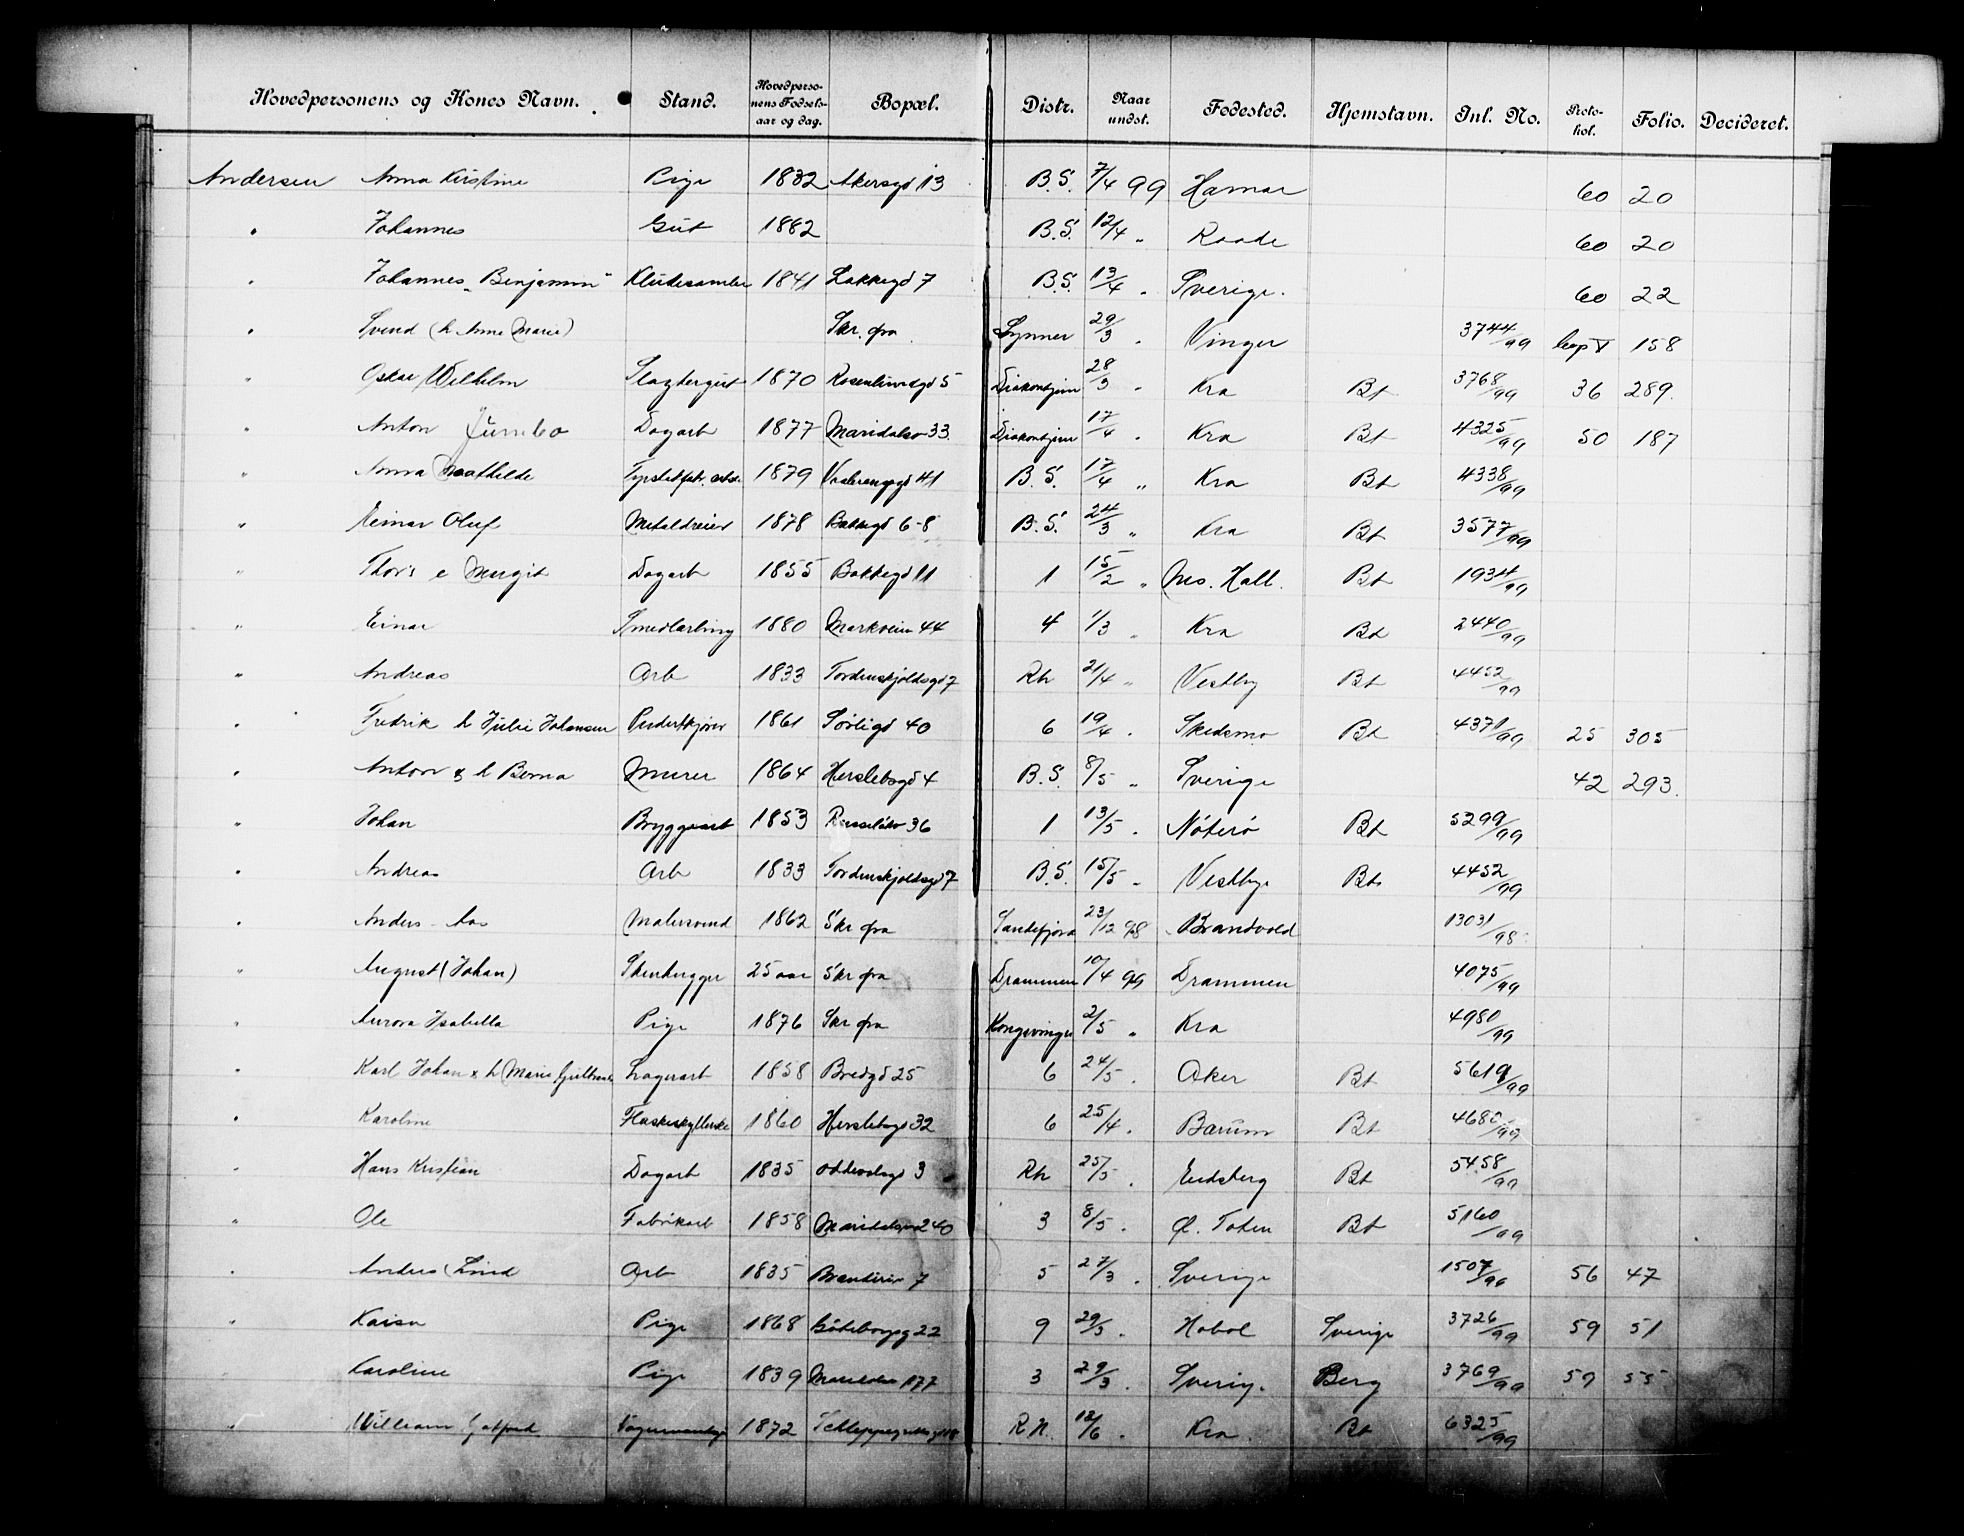 Hovedpersonens og Kones Navn. Stand. Hovedperso-nens Fødsels-aar og dag. Bopæl. Distr. Naar undst. Fødested. Hjemstavn. Inl. No. Proto-kol. Folio. Decideret.
Andersen Anna Kirstine Pige 1832 Akersgd 13 B.S. 7/4 99 Hamar 60 20
" Johannes Gut 1882 B.S. 12/4 " Raade 60 20
" Johannes "Benjamin" Kludesamler 1841 Lakkegd 7 B.S. 13/4 " Sverige. 60 22
" Svend (h Anne Marie) Skr. fra Lynner 29/3 " Vinger 3744/99 158
" Oskar Wilhelm Slagtergut 1870 Rosenlundgd 5 Diakonhjem 28/3 " Kra Bt 3768/99 36 289.
" Anton Jumbo Dagarb 1877 Maridalsv 33. Diakonhjem 17/4 " Kra Bt 4325/99 50 187
" Anna Mathilde 1879 Vaalerenggd 41 B.S. 17/4 " Kra Bt 4338/99
" Einar Oluf Metaldreier 1878 Bakkegd 6-8 B.S. 24/3 " Kra Bt 3577/99
" Thors e Margit Dagarb 1855 Bakkegd 11 1 15/2 " Nes. Hall. Bt 1934/99
" Einar Smedlærling 1880 Markveien 44 4 1/3 " Kra Bt 2440/99
" Andreas Arb 1833 Tordenskjoldsgd 7 Rh 21/4 " Vestby Bt 4452/99
" Fredrik h Julie Johansen 1861 Sørligd 40 6 19/4 " Skedsmo Bt 4371/99 25 305
" Anton & h Berna Murer 1864 Herslebsgd 4 B.S. 8/5 " Sverige 42 293.
" Johan Bryggearb 1853 36 1 13/5 " Nøterø Bt 5299/99
" Andreas Arb 1833 Tordenskjoldsgd 7 B.S. 15/5 " Vestby Bt 4452/99
" Anders - Aas Malersvend 1862 Skr fra Sandefjord 23/12 98 Brandvold 13031/98
" August (Johan) Stenhugger 25 aar Skr fra Drammen 10/4 99 Drammen 4075/99
" Aurora Isabella Pige 1876 Skr fra Kongsvinger 2/5 " Kra 4980/99
" Karl Johan & h Marie Lagerarb 1858 Bredgd 25 6 24/5 " Aker Bt 5619/99
" Karoline Flaskeskyllerske 1860 Herslebsgd 32 6 25/4 " Bærum Bt 4680/99
" Hans Kristian Dagarb 1835 3 Rh 25/5 " Eidsberg Bt 5458/99
" Ole Fabrikarb 1858 Maridalsvei 240 3 8/5 " Ø. Toten Bt 5160/99
" Anders Lind Arb 1835 7 5 27/3 " Sverige 1507/96 56 47
" Kaisa Pige 1868 Göteborgsg 22 9 29/3 " Hobøl Sverige 3726/99 59 51
" Karoline Pige 1839 Maridalsv 177 3 29/3 " Sverig. Berg 3769/99 59 55
" William 1872 Schleppegrellsgd 18 R.H. 12/6 " Kra. Bt 6325/99